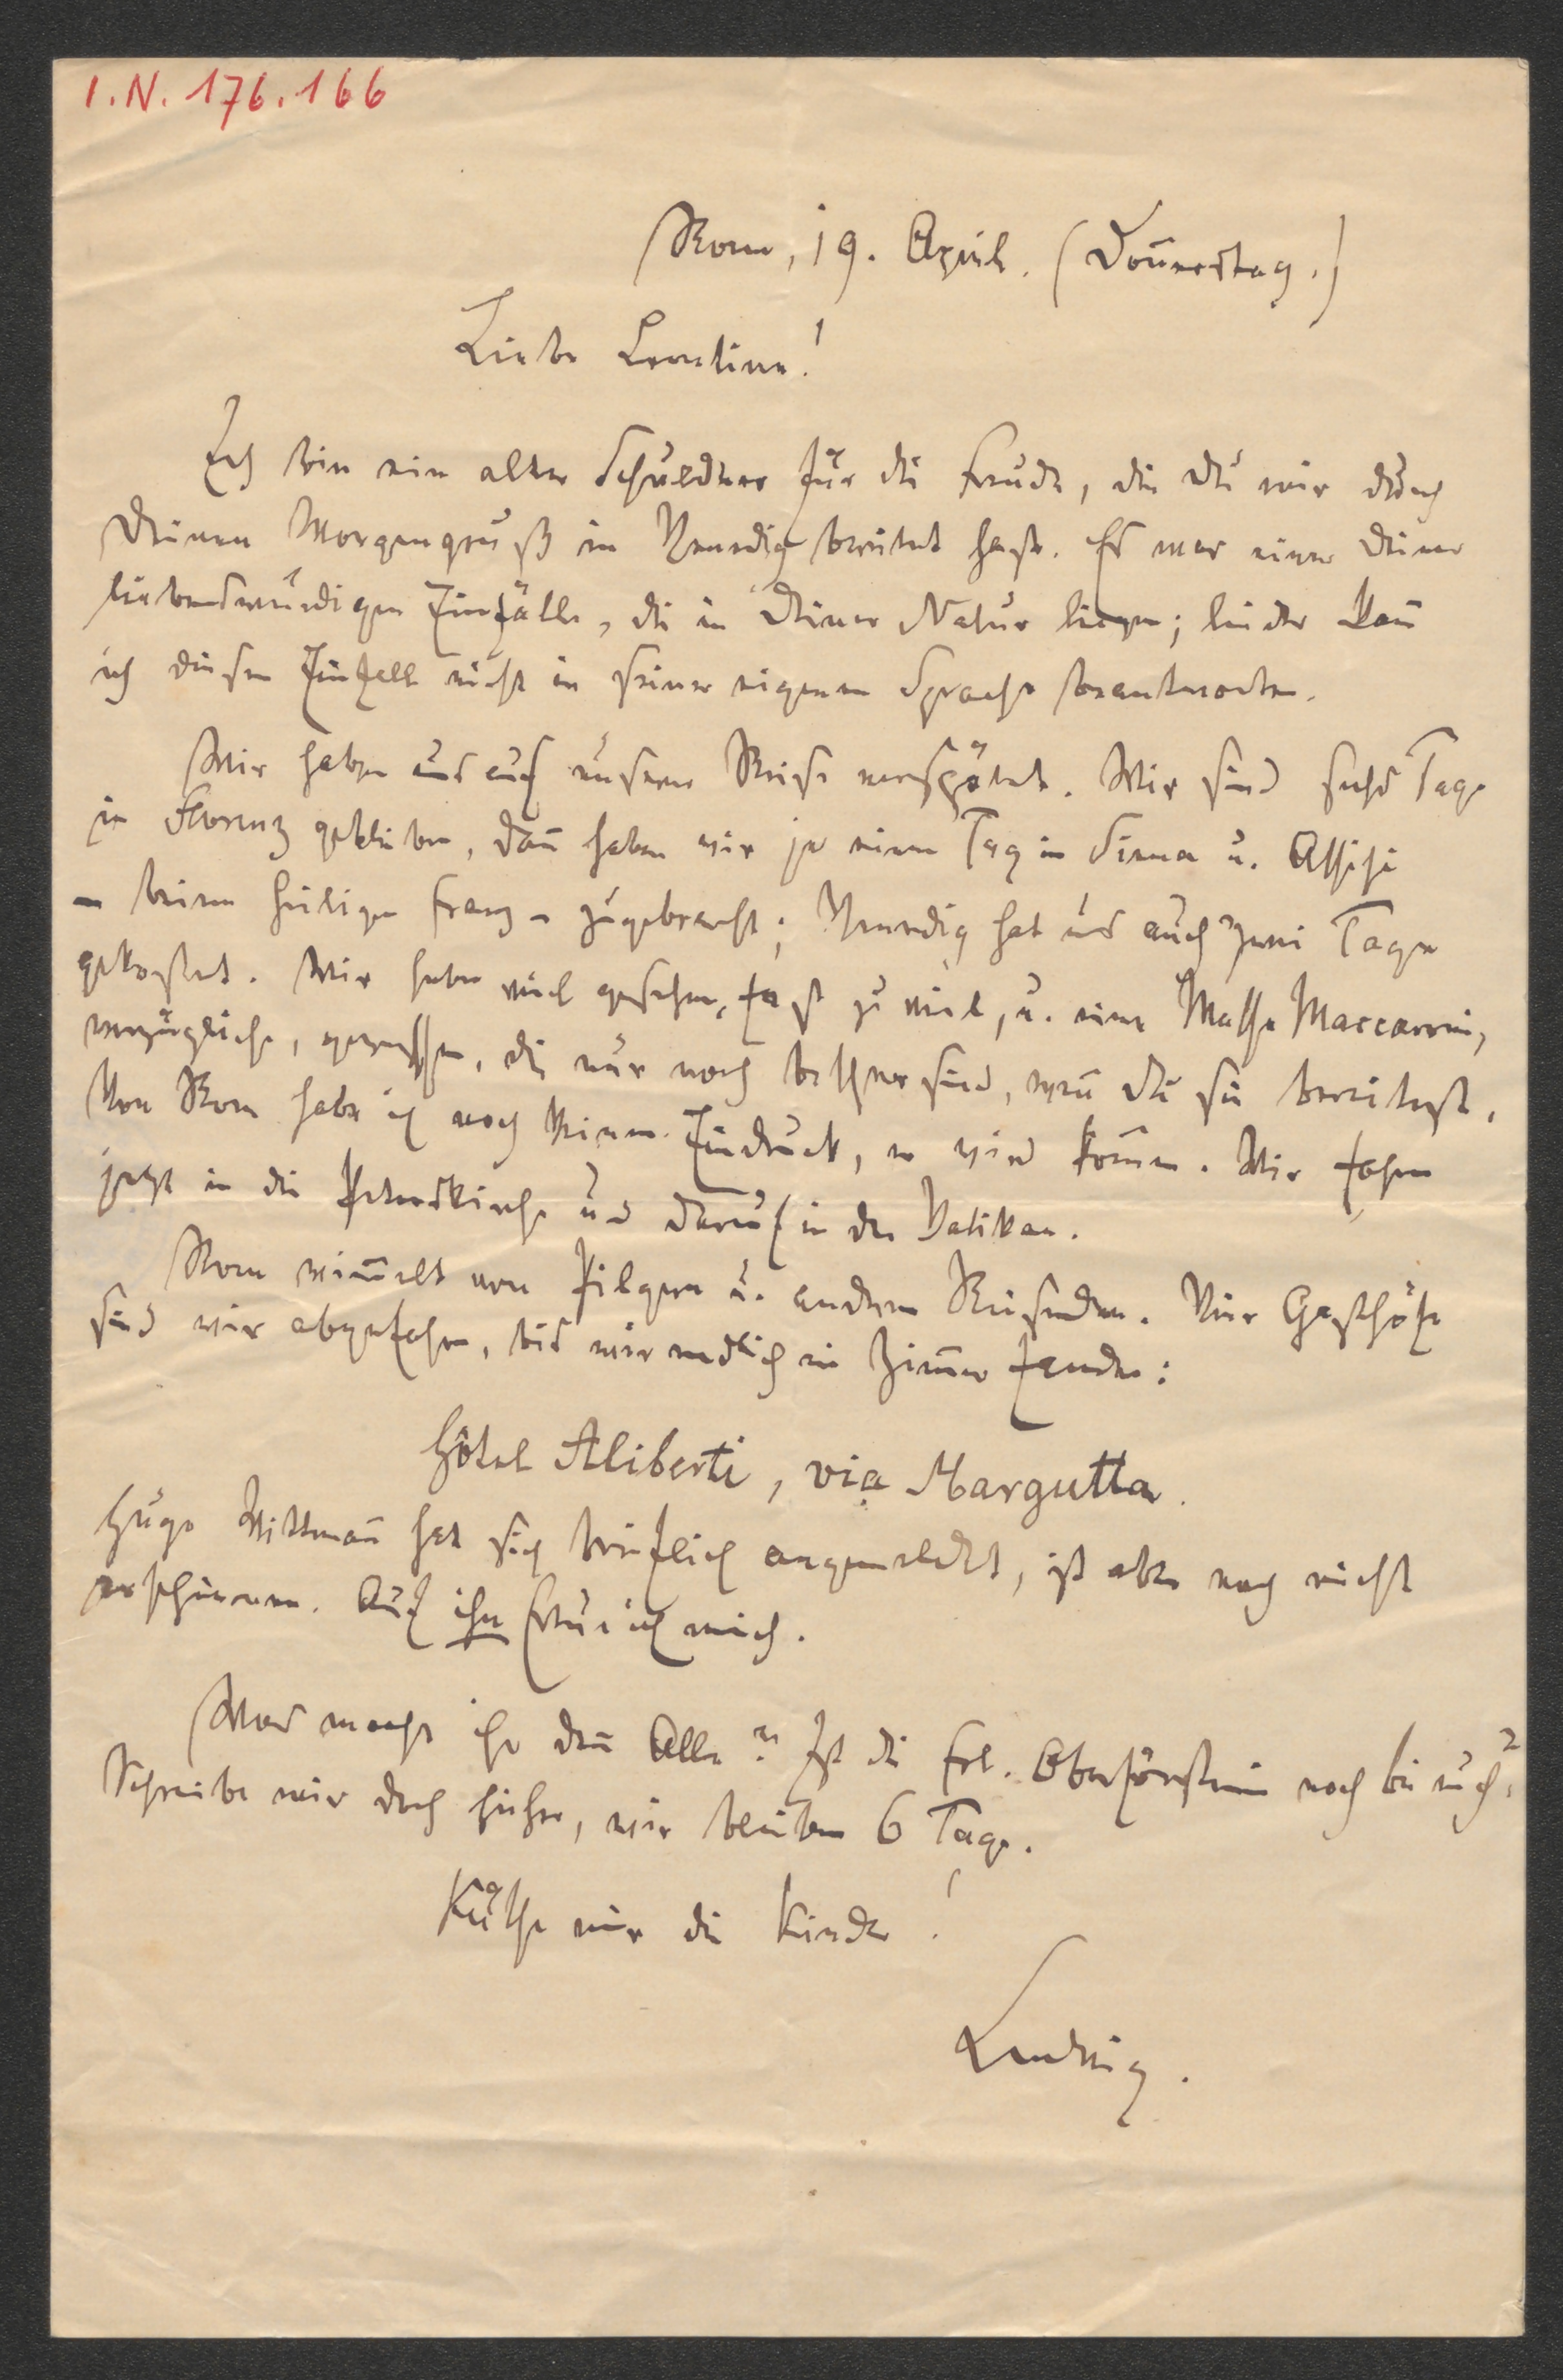 I.N. 176.166
Rom, 19. April. (Donnerstag.)
Liebe Leontine!
Ich bin ein alter Schuldner für die Freude, die Du mir durch
Deinen Morgengruß in Venedig bereitet hast. Es war einer Deiner
liebenswürdigen Einfälle, die in Deiner Natur liegen; leider kann
ich diesen Einfall nicht in seiner eigenen Sprache beantworten.
Wir haben uns auf unserer Reise verspätet. Wir sind sechs Tage
in Florenz geblieben, dann haben wir je einen Tag in Siena u. Assisi
– beim heiligen Franz – zugebracht; Venedig hat uns auch zwei Tage
gekostet. Wir haben viel gesehen, fast zu viel, u. eine Masse Maccaroni,
vorzügliche, gegessen, die nur noch besser sind, wenn Du sie bereitest.
Von Rom habe ich noch keinen Eindruck, er wird kommen. Wir fahren
jetzt in die Peterskirche und darauf in den Vatikan.
Rom wimmelt von Pilgern u. anderen Reisenden. Vier Gasthöfe
sind wir abgefahren, bis wir endlich ein Zimmer fanden:
Hôtel Aliberti, via Margutta.
Hugo Wittmann hat sich brieflich angemeldet, ist aber noch nicht
erschienen. Auf ihn freue ich mich.
Was macht ihr denn Alle? Ist die Frl. Oberförsterin noch bei euch?
Schreibe mir doch hieher, wir bleiben 6 Tage.
Küsse mir die Kinder!
Ludwig.